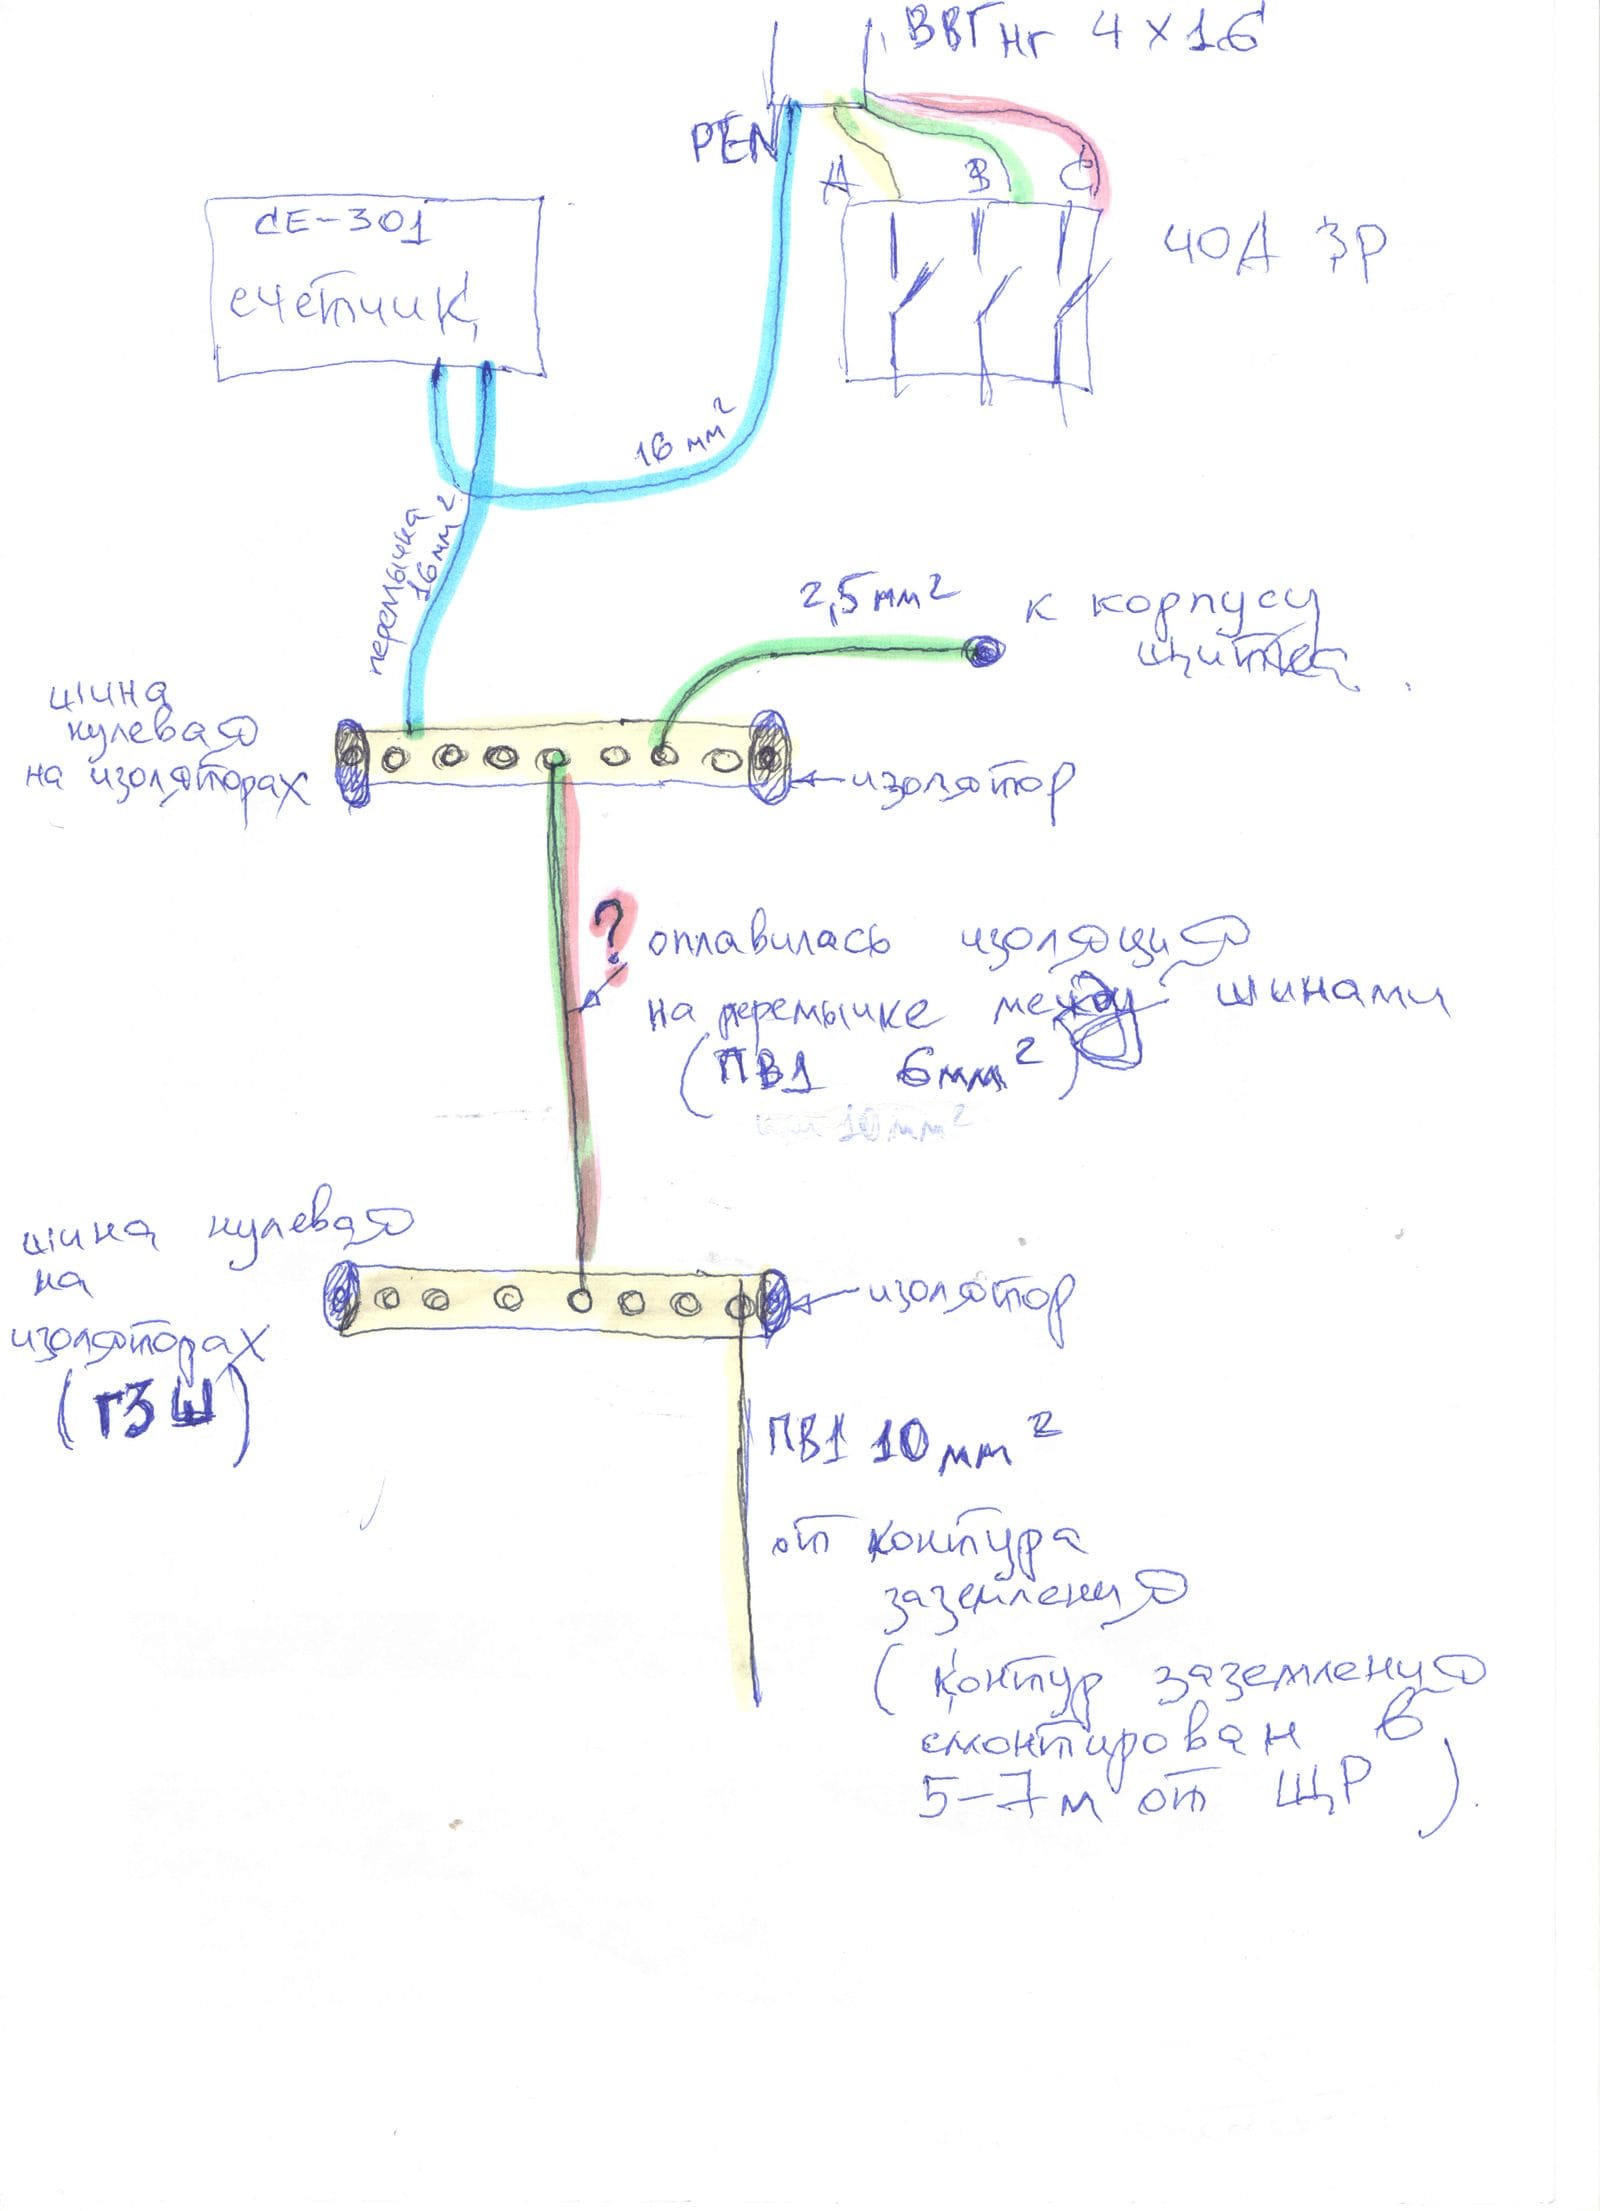 ВВГнг 4 х 16
PEN
А В С
СЕ-301
счетчик
40А 3Р
16 мм²
перемычка
16 мм²
2,5 мм²
к корпусу
щитка.
шина
нулевая
на изоляторах
изолятор
? оплавилась изоляция
на перемычке между шинами
(ПВ1 6мм²)
10 мм²
шина нулевая
на
изоляторах
(ГЗШ)
изолятор
ПВ1 10 мм²
от контура
заземления
(контур заземления
смонтирован в
5-7м от ЩР).